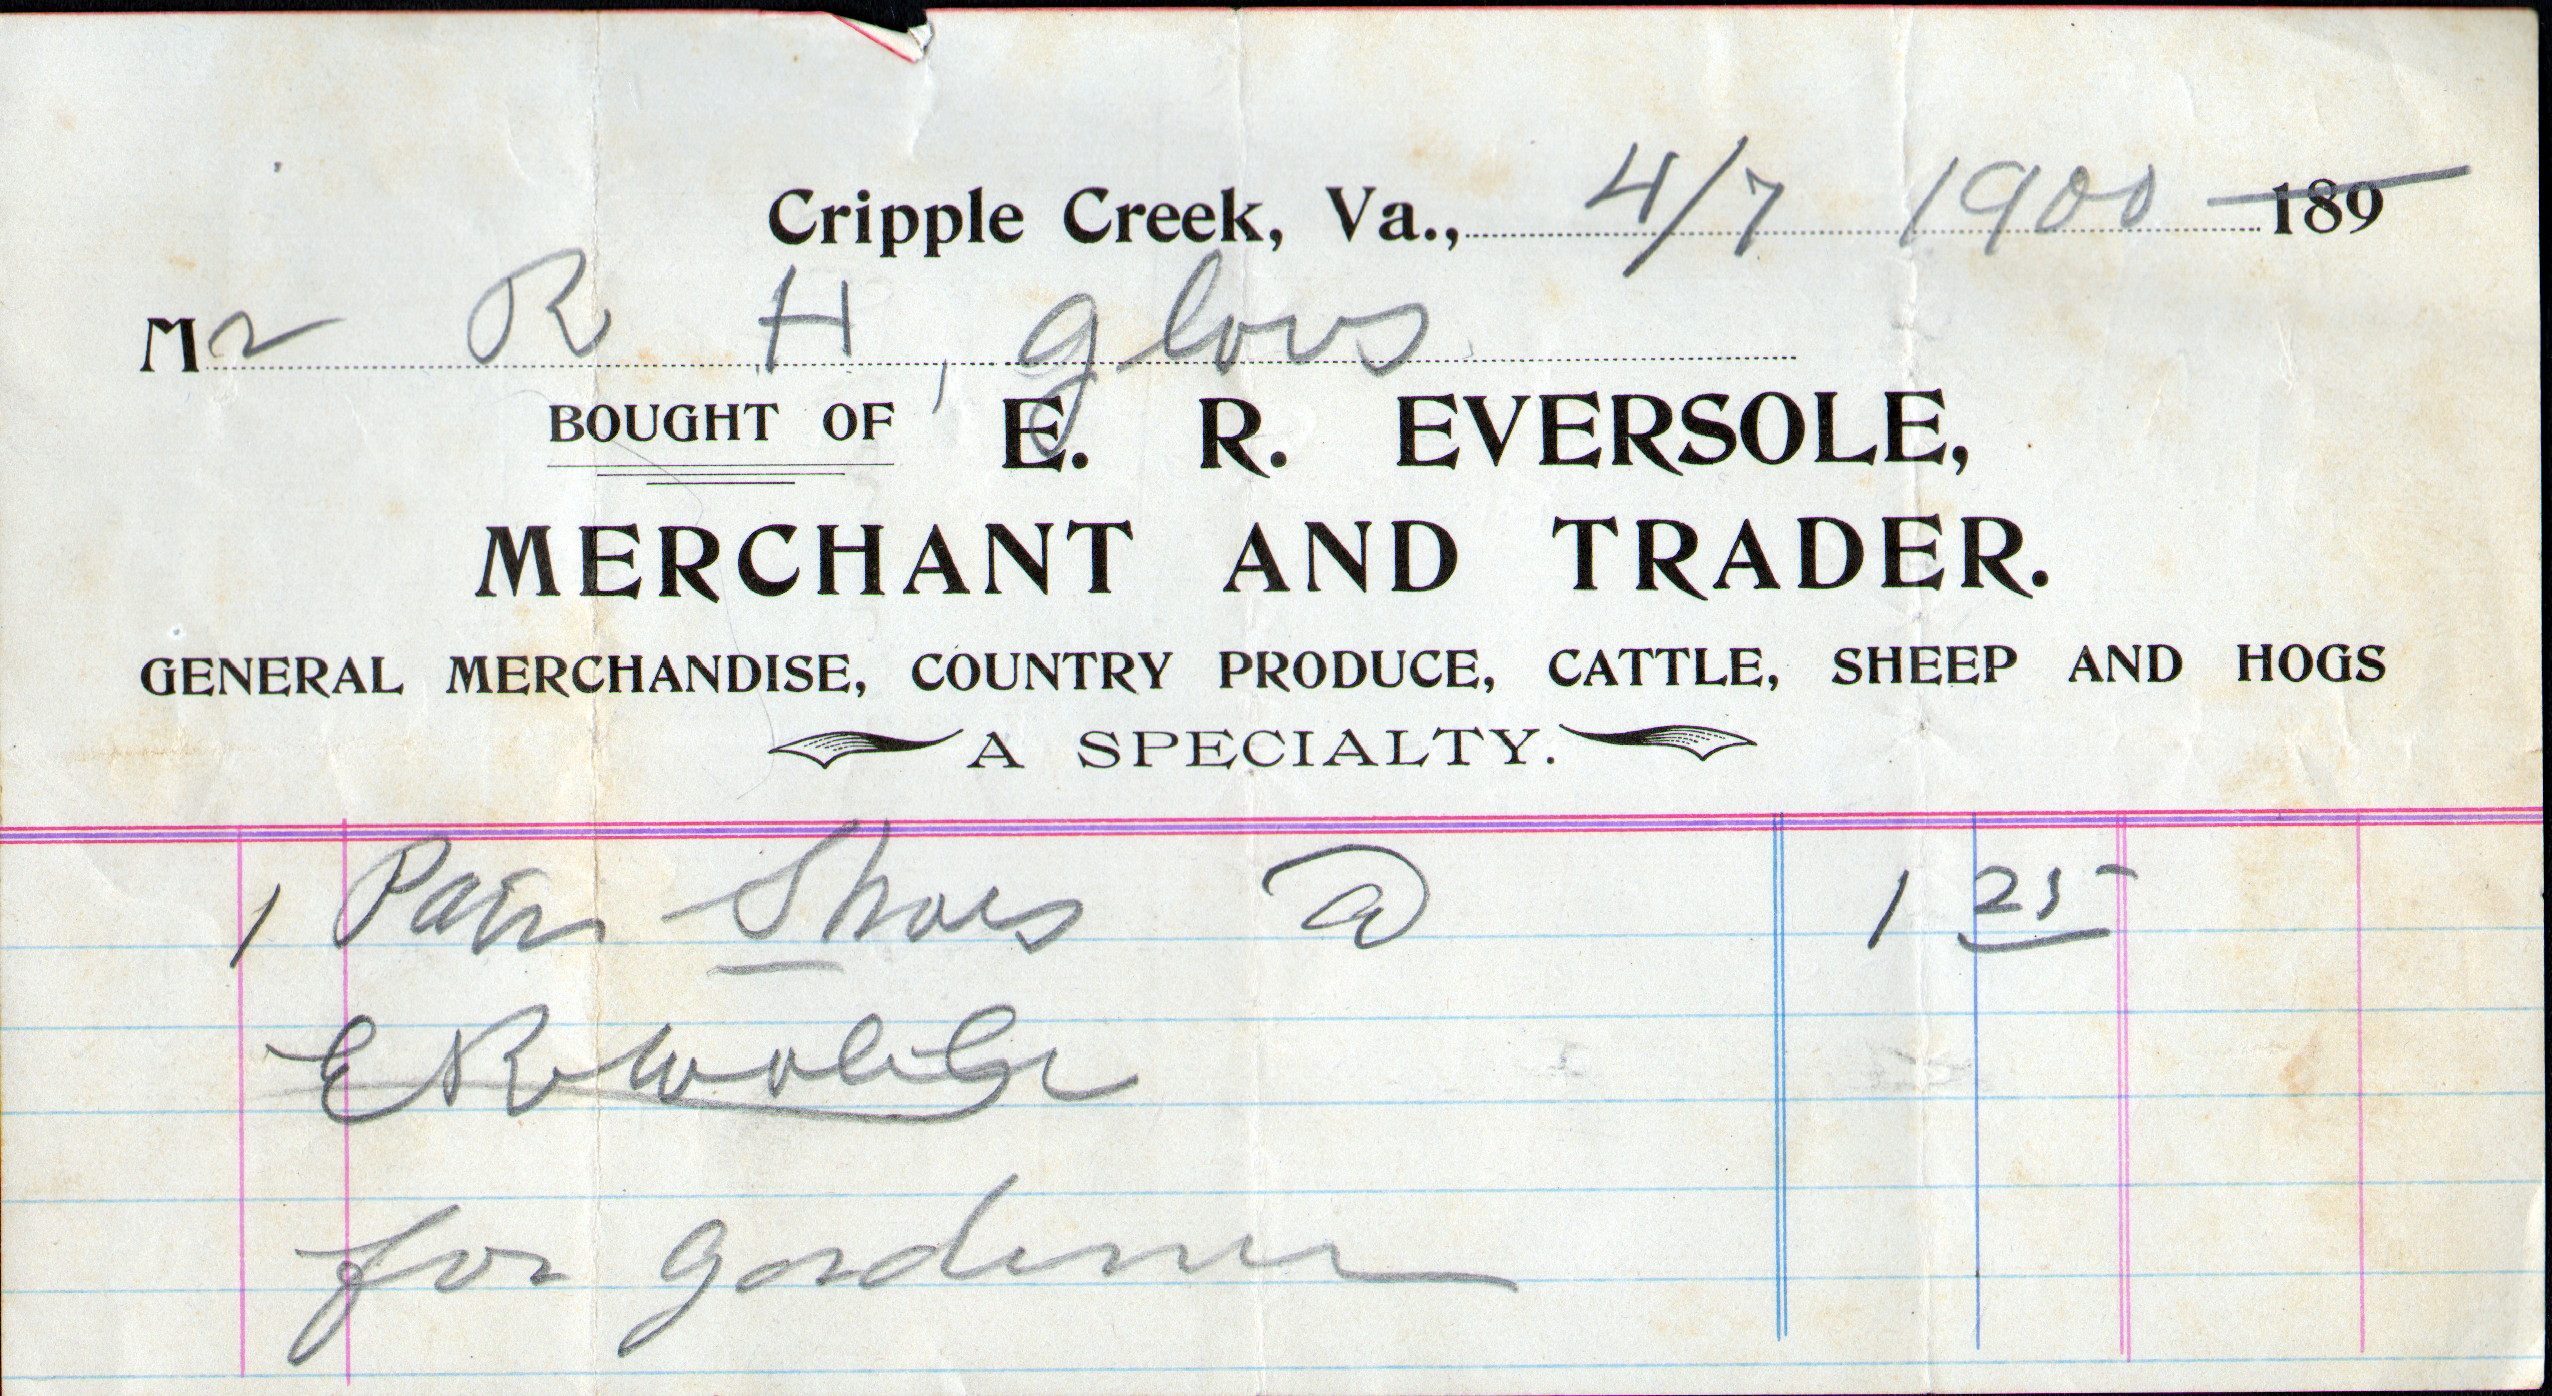 Cripple Creek, Va., 4/7 1900 189
Mr R H
BOUGHT OF E. R. EVERSOLE,
MERCHANT AND TRADER.
GENERAL MERCHANDISE, COUNTRY PRODUCE, CATTLE, SHEEP AND HOGS
A SPECIALTY.
1 Pair Shoes @ 1 25
E R
for